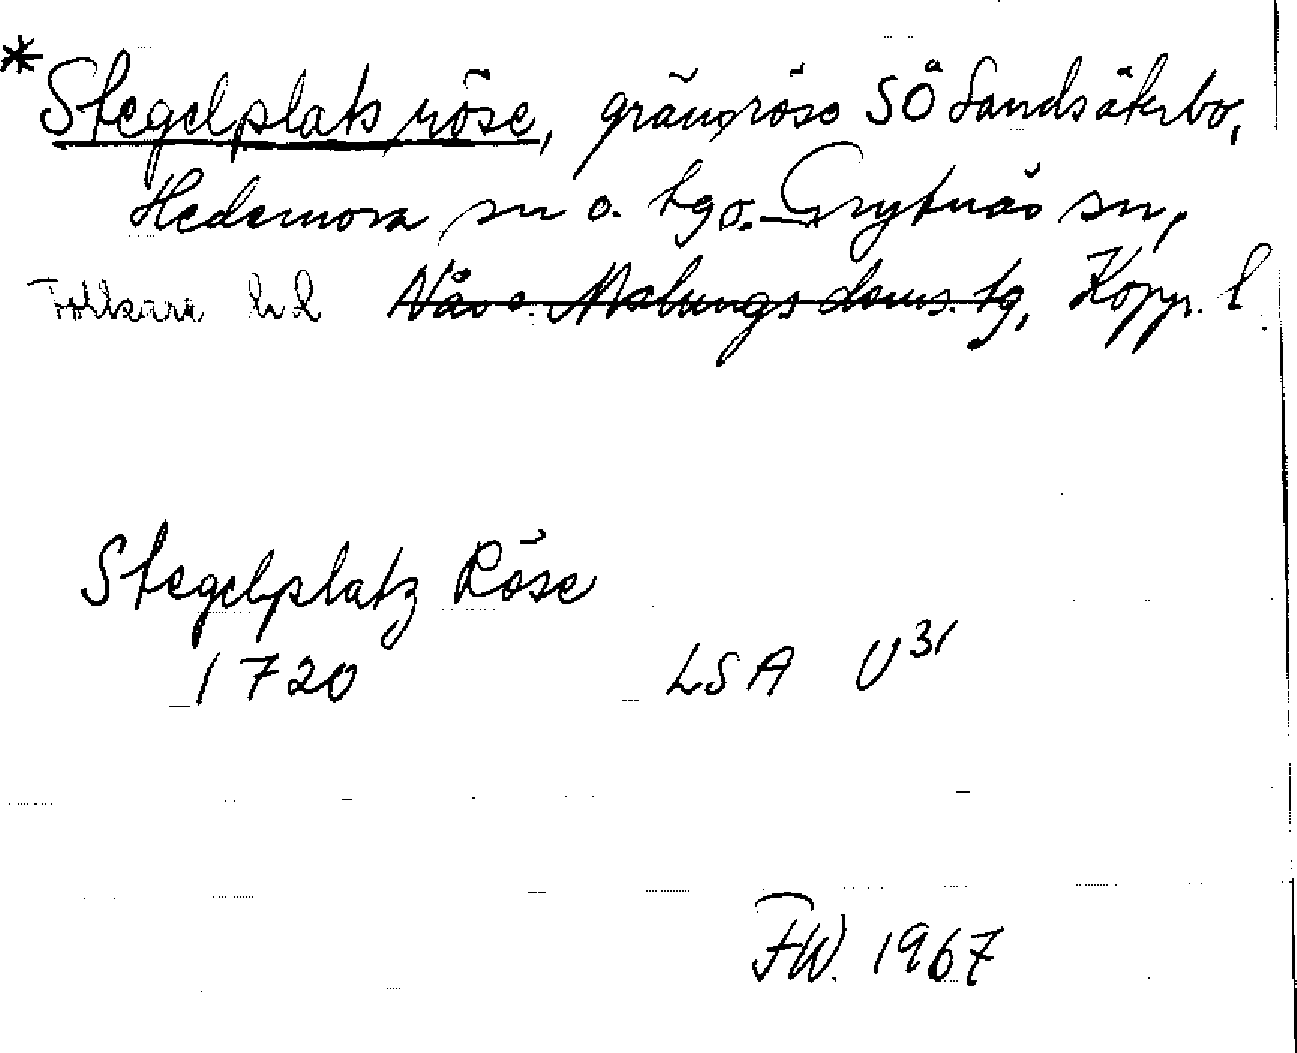 *Stegelplatsröse, gränsröse SÖ Sandsäkerbo,
Hedemora sn o. tgo. Grytnäs sn,
Folkare hd Näs o. Malungs doms. tg, Kopp. l
Stegelplatz Röse
1720 LSA U31
FW. 1967